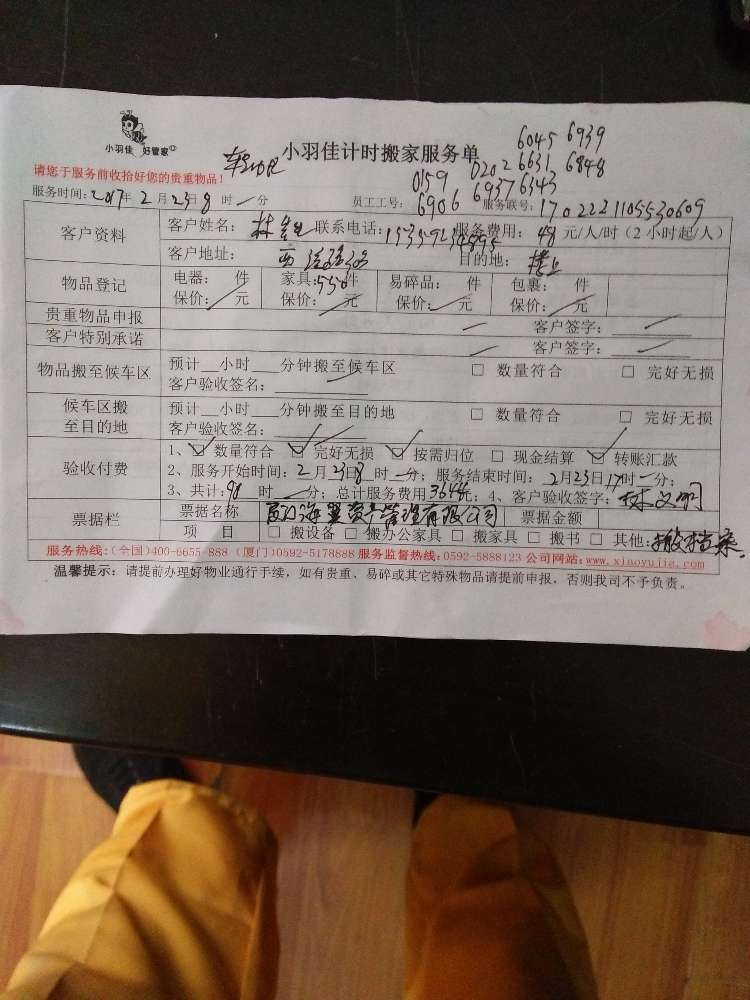 小羽佳 好管家
小羽佳计时搬家服务单
6045 6939
0159 0202 6631 6848
6906 6937 6343
请您于服务前收拾好您的贵重物品!
服务时间:2017年2月23日8时—分 员工工号: 服务联号:1702221105530609
客户资料
客户姓名:林 联系电话: 服务费用:48元/人/时(2小时起/人)
客户地址: 目的地:楼上
物品登记
电器: 件 家具:550件 易碎品: 件 包裹: 件
保价: 元 保价: 元 保价: 元 保价: 元
贵重物品申报 客户签字:
客户特别承诺 客户签字:
物品搬至候车区
预计__小时___分钟搬至候车区 □ 数量符合 □ 完好无损
客户验收签名:
候车区搬至目的地
预计__小时___分钟搬至目的地 □ 数量符合 □ 完好无损
客户验收签名:
验收付费
1、☑ 数量符合 ☑ 完好无损 ☑ 按需归位 □ 现金结算 ☑ 转账汇款
2、服务开始时间:2月23日8时—分;服务结束时间:2月23日17时—分;
3、共计: 时—分;总计服务费用3648元;4、客户验收签字:林文明
票据栏
票据名称 厦门海翼资产管理有限公司 票据金额
项 目 □ 搬设备 □ 搬办公家具 □ 搬家具 □ 搬书 □ 其他:搬档案.
服务热线:(全国)400-6655-888 (厦门)0592-5178888 服务监督热线:0592-5888123 公司网站:www.xiaoyujia.com
温馨提示:请提前办理好物业通行手续,如有贵重、易碎或其它特殊物品请提前申报,否则我司不予负责。